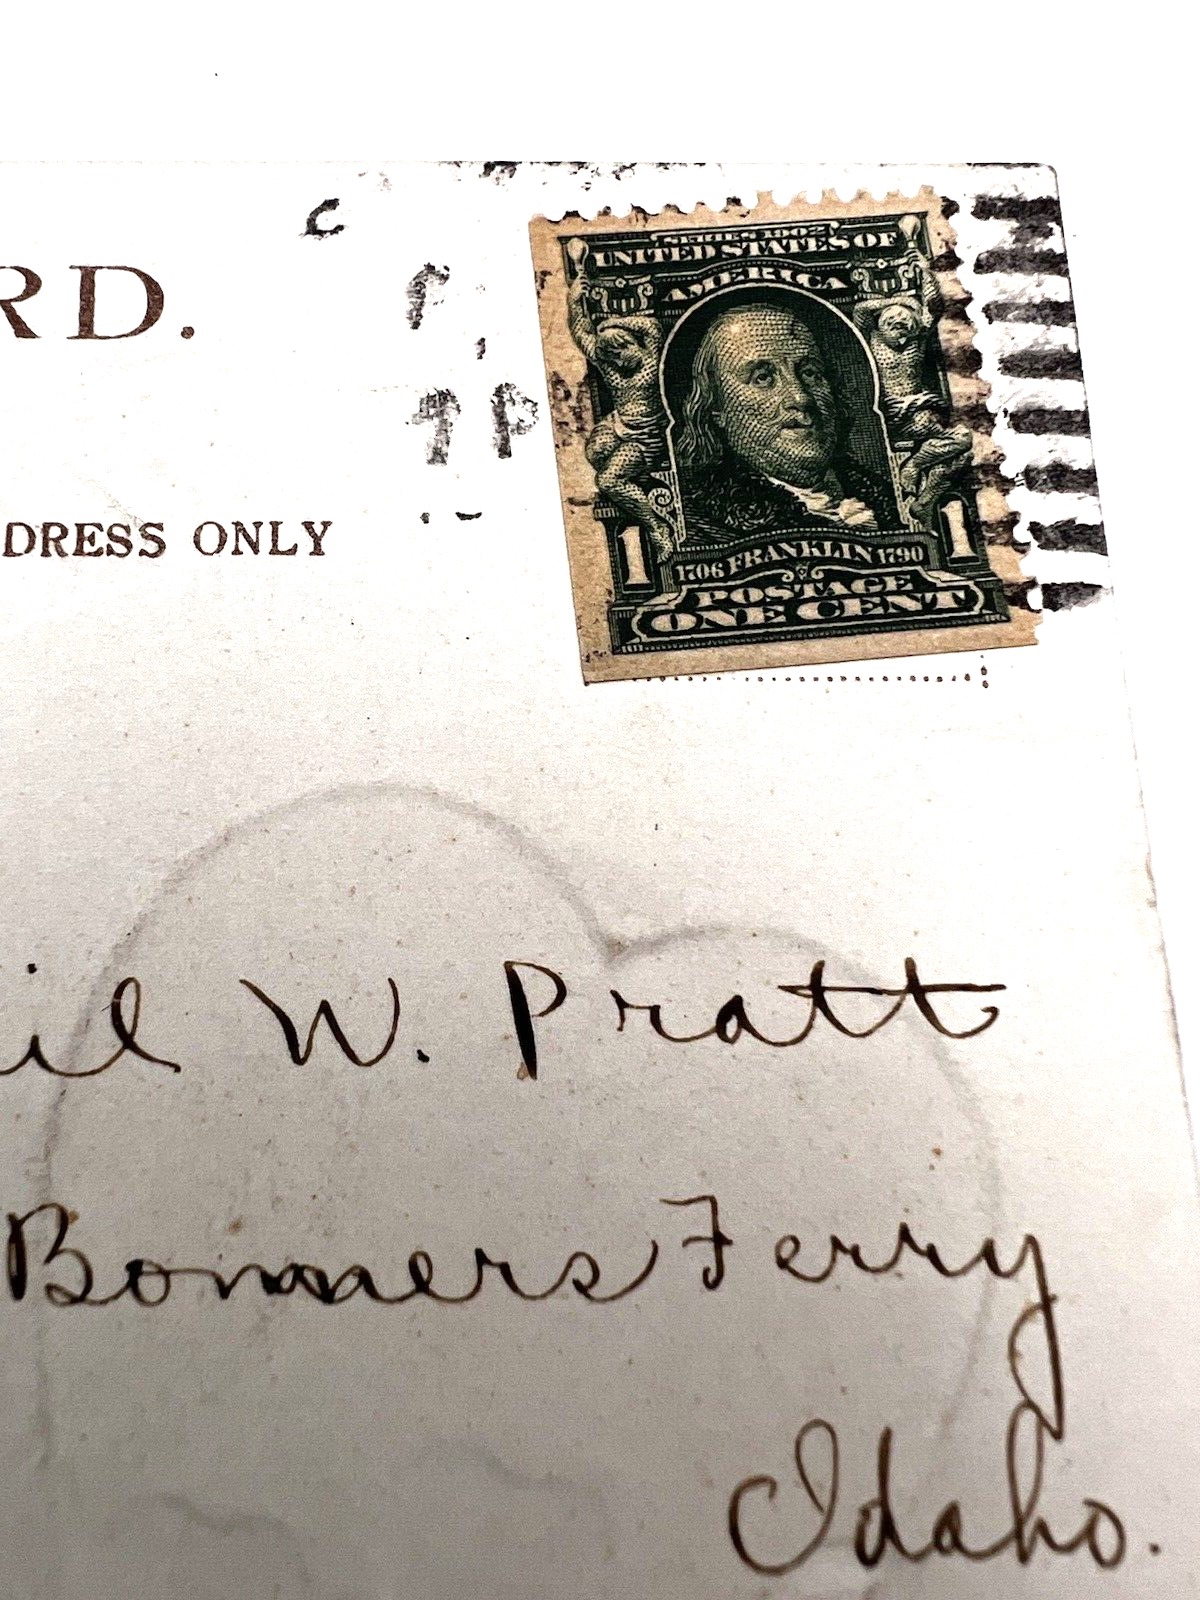 RD.
SERIES 1902
UNITED STATES OF
AMERICA
1 1
1706 FRANKLIN 1790
POSTAGE
ONE CENT
DRESS ONLY
il W. Pratt
Bonners Ferry
Idaho.